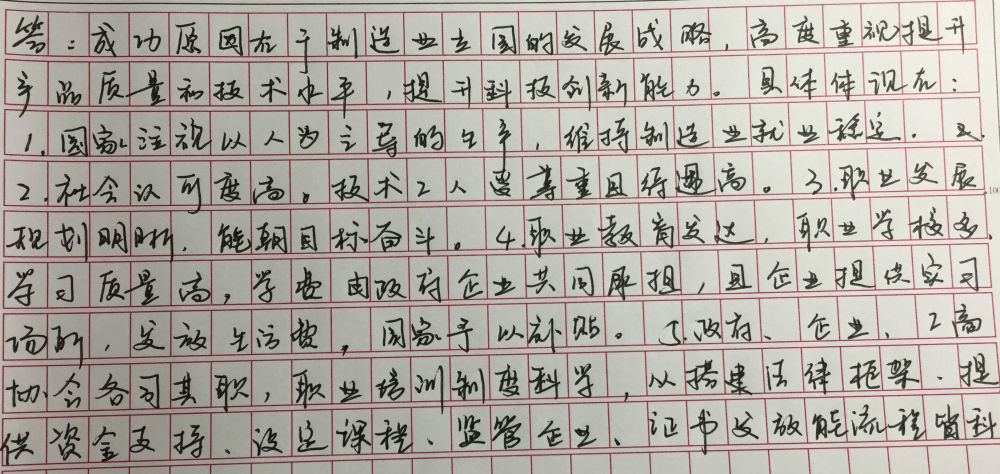 答：成功原因在于制造业立国的发展战略，高度重视提升
产品质量和技术水平，提升科技创新能力。具体体现在：
1.国家注视以人为主导的生产，维持制造业就业稳定。
2.社会认可度高。技术工人受尊重且待遇高。3.职业发展
规划明晰，能朝目标奋斗。4.职业教育发达，职业学校多，
学习质量高，学费由政府企业共同承担，且企业提供实习
场所，发放生活费，国家予以补贴。5.政府、企业、工商
协会各司其职，职业培训制度科学，从搭建法律框架、提
供资金支持、设定课程、监管企业、证书发放能流程皆科
100